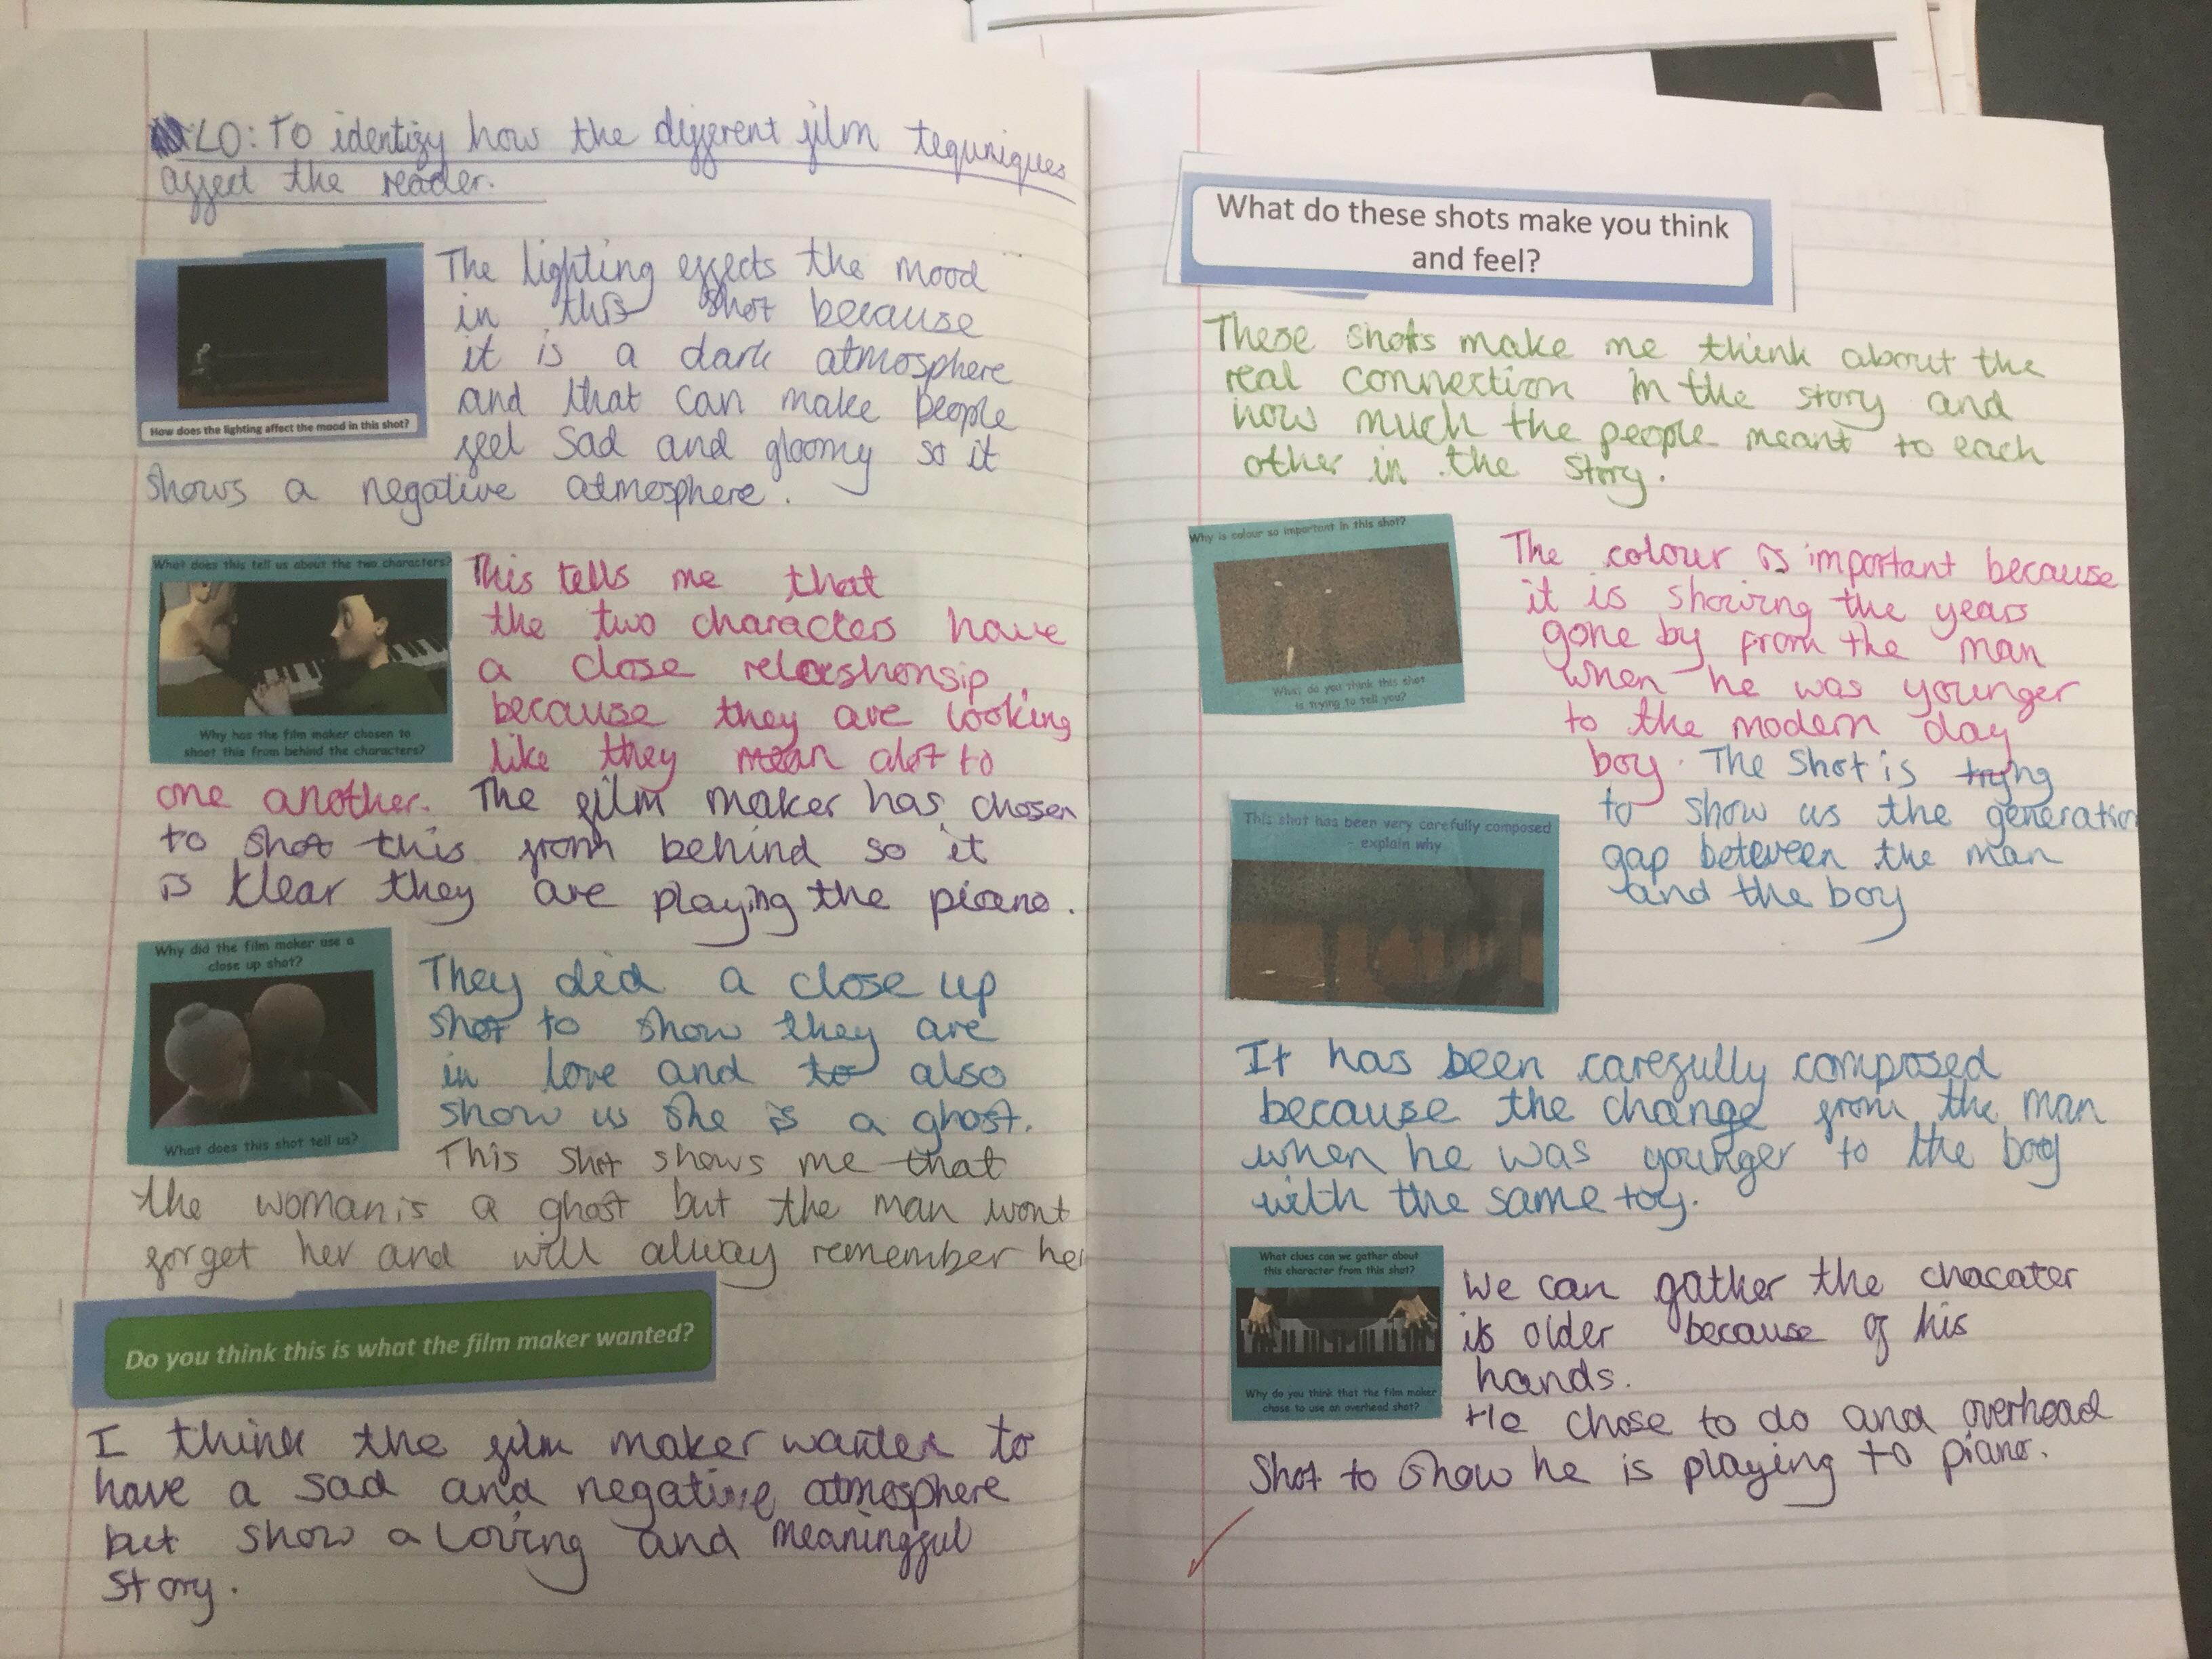 LO: To identify how the different film tequniques
affect the reader.
How does the lighting affect the mood in this shot?
The lighting effects the mood
in this shot because
it is a dark atmosphere
and that can make people
feel sad and gloomy so it
shows a negative atmosphere.
What does this tell us about the two characters?
Why has the film maker chosen to
shoot this from behind the characters?
This tells me that
the two characters have
a close relaishonsip
because they are looking
like they mean alot to
one another. The film maker has chosen
to shot this from behind so it
is klear they are playing the piano.
Why did the film maker use a
close up shot?
What does this shot tell us?
They did a close up
shot to show they are
in love and to also
show us she is a ghost.
This shot shows me that
the woman is a ghost but the man wont
forget her and will alway remember her
Do you think this is what the film maker wanted?
I think the film maker wanted to
have a sad and negative atmosphere
but show a loving and meaningful
story.
What do these shots make you think
and feel?
These shots make me think about the
real connection in the story and
how much the people meant to each
other in the story.
Why is colour so important in this shot?
What do you think this shot
is trying to tell you?
The colour is important because
it is showing the years
gone by from the man
when he was younger
to the modern day
boy. The shot is trying
to show us the generation
gap between the man
and the boy
This shot has been very carefully composed
- explain why
It has been carefully composed
because the change from the man
when he was younger to the boy
with the same toy.
What clues can we gather about
this character from this shot?
Why do you think that the film maker
chose to use an overhead shot?
We can gather the chacater
is older because of his
hands.
He chose to do and overhead
shot to show he is playing to piano.